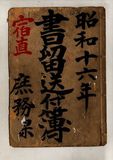 昭和十六年
書留送付簿
宿直
庶務系